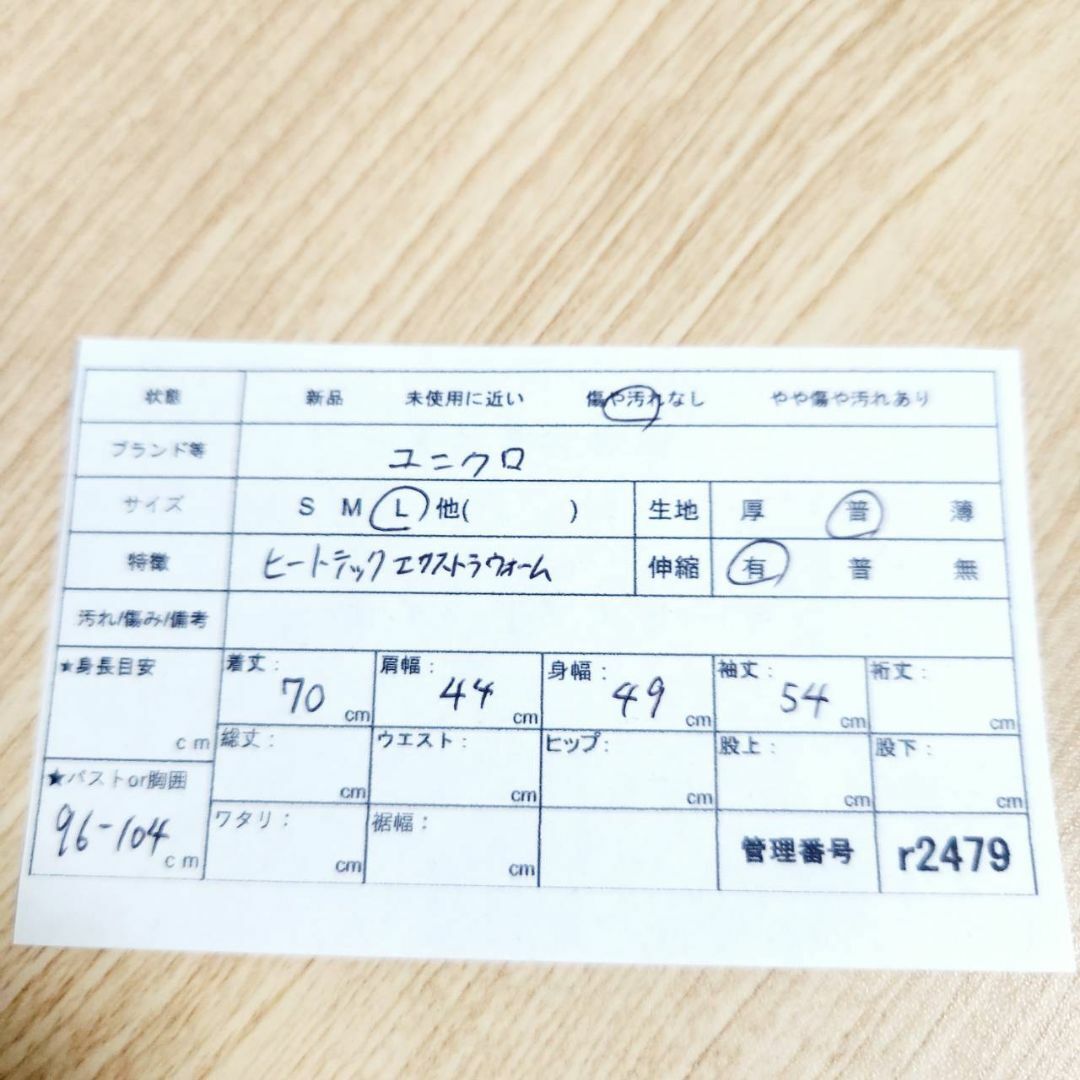 状態 新品 未使用に近い 傷や汚れなし やや傷や汚れあり
ブランド等 ユニクロ
サイズ S M L 他( ) 生地 厚 普 薄
特徴 ヒートテックエクストラウォーム 伸縮 有 普 無
汚れ/傷み/備考
★身長目安 cm 着丈: 70 cm 肩幅: 44 cm 身幅: 49 cm 袖丈: 54 cm 裄丈: cm
総丈: cm ウエスト: cm ヒップ: cm 股上: cm 股下: cm
★バストor胸囲 96-104 cm ワタリ: cm 裾幅: cm 管理番号 r2479